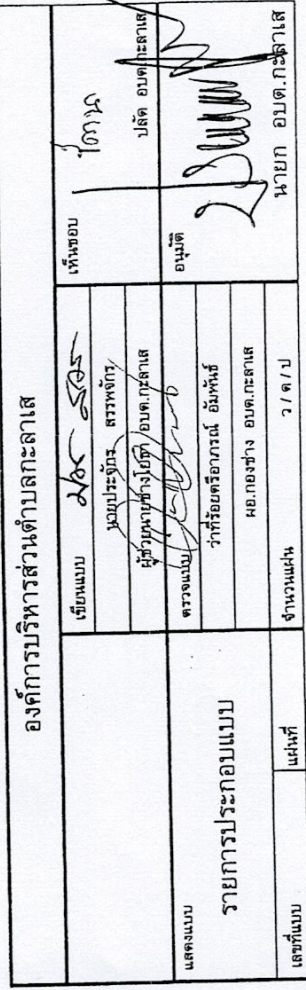 องค์การบริหารส่วนตำบลกะลาเส
แสดงแบบ
รายการประกอบแบบ
เลขที่แบบ
แผ่นที่
เขียนแบบ
นายประจักร สรรพจักร
ผู้ช่วยนายช่างโยธา อบต.กะลาเส
ตรวจแบบ
ว่าที่ร้อยตรีอาภรณ์ อัมพันธ์
ผอ.กองช่าง อบต.กะลาเส
จำนวนแผ่น
ว / ด / ป
เห็นชอบ
ปลัด อบต.กะลาเส
อนุมัติ
นายก อบต.กะลาเส